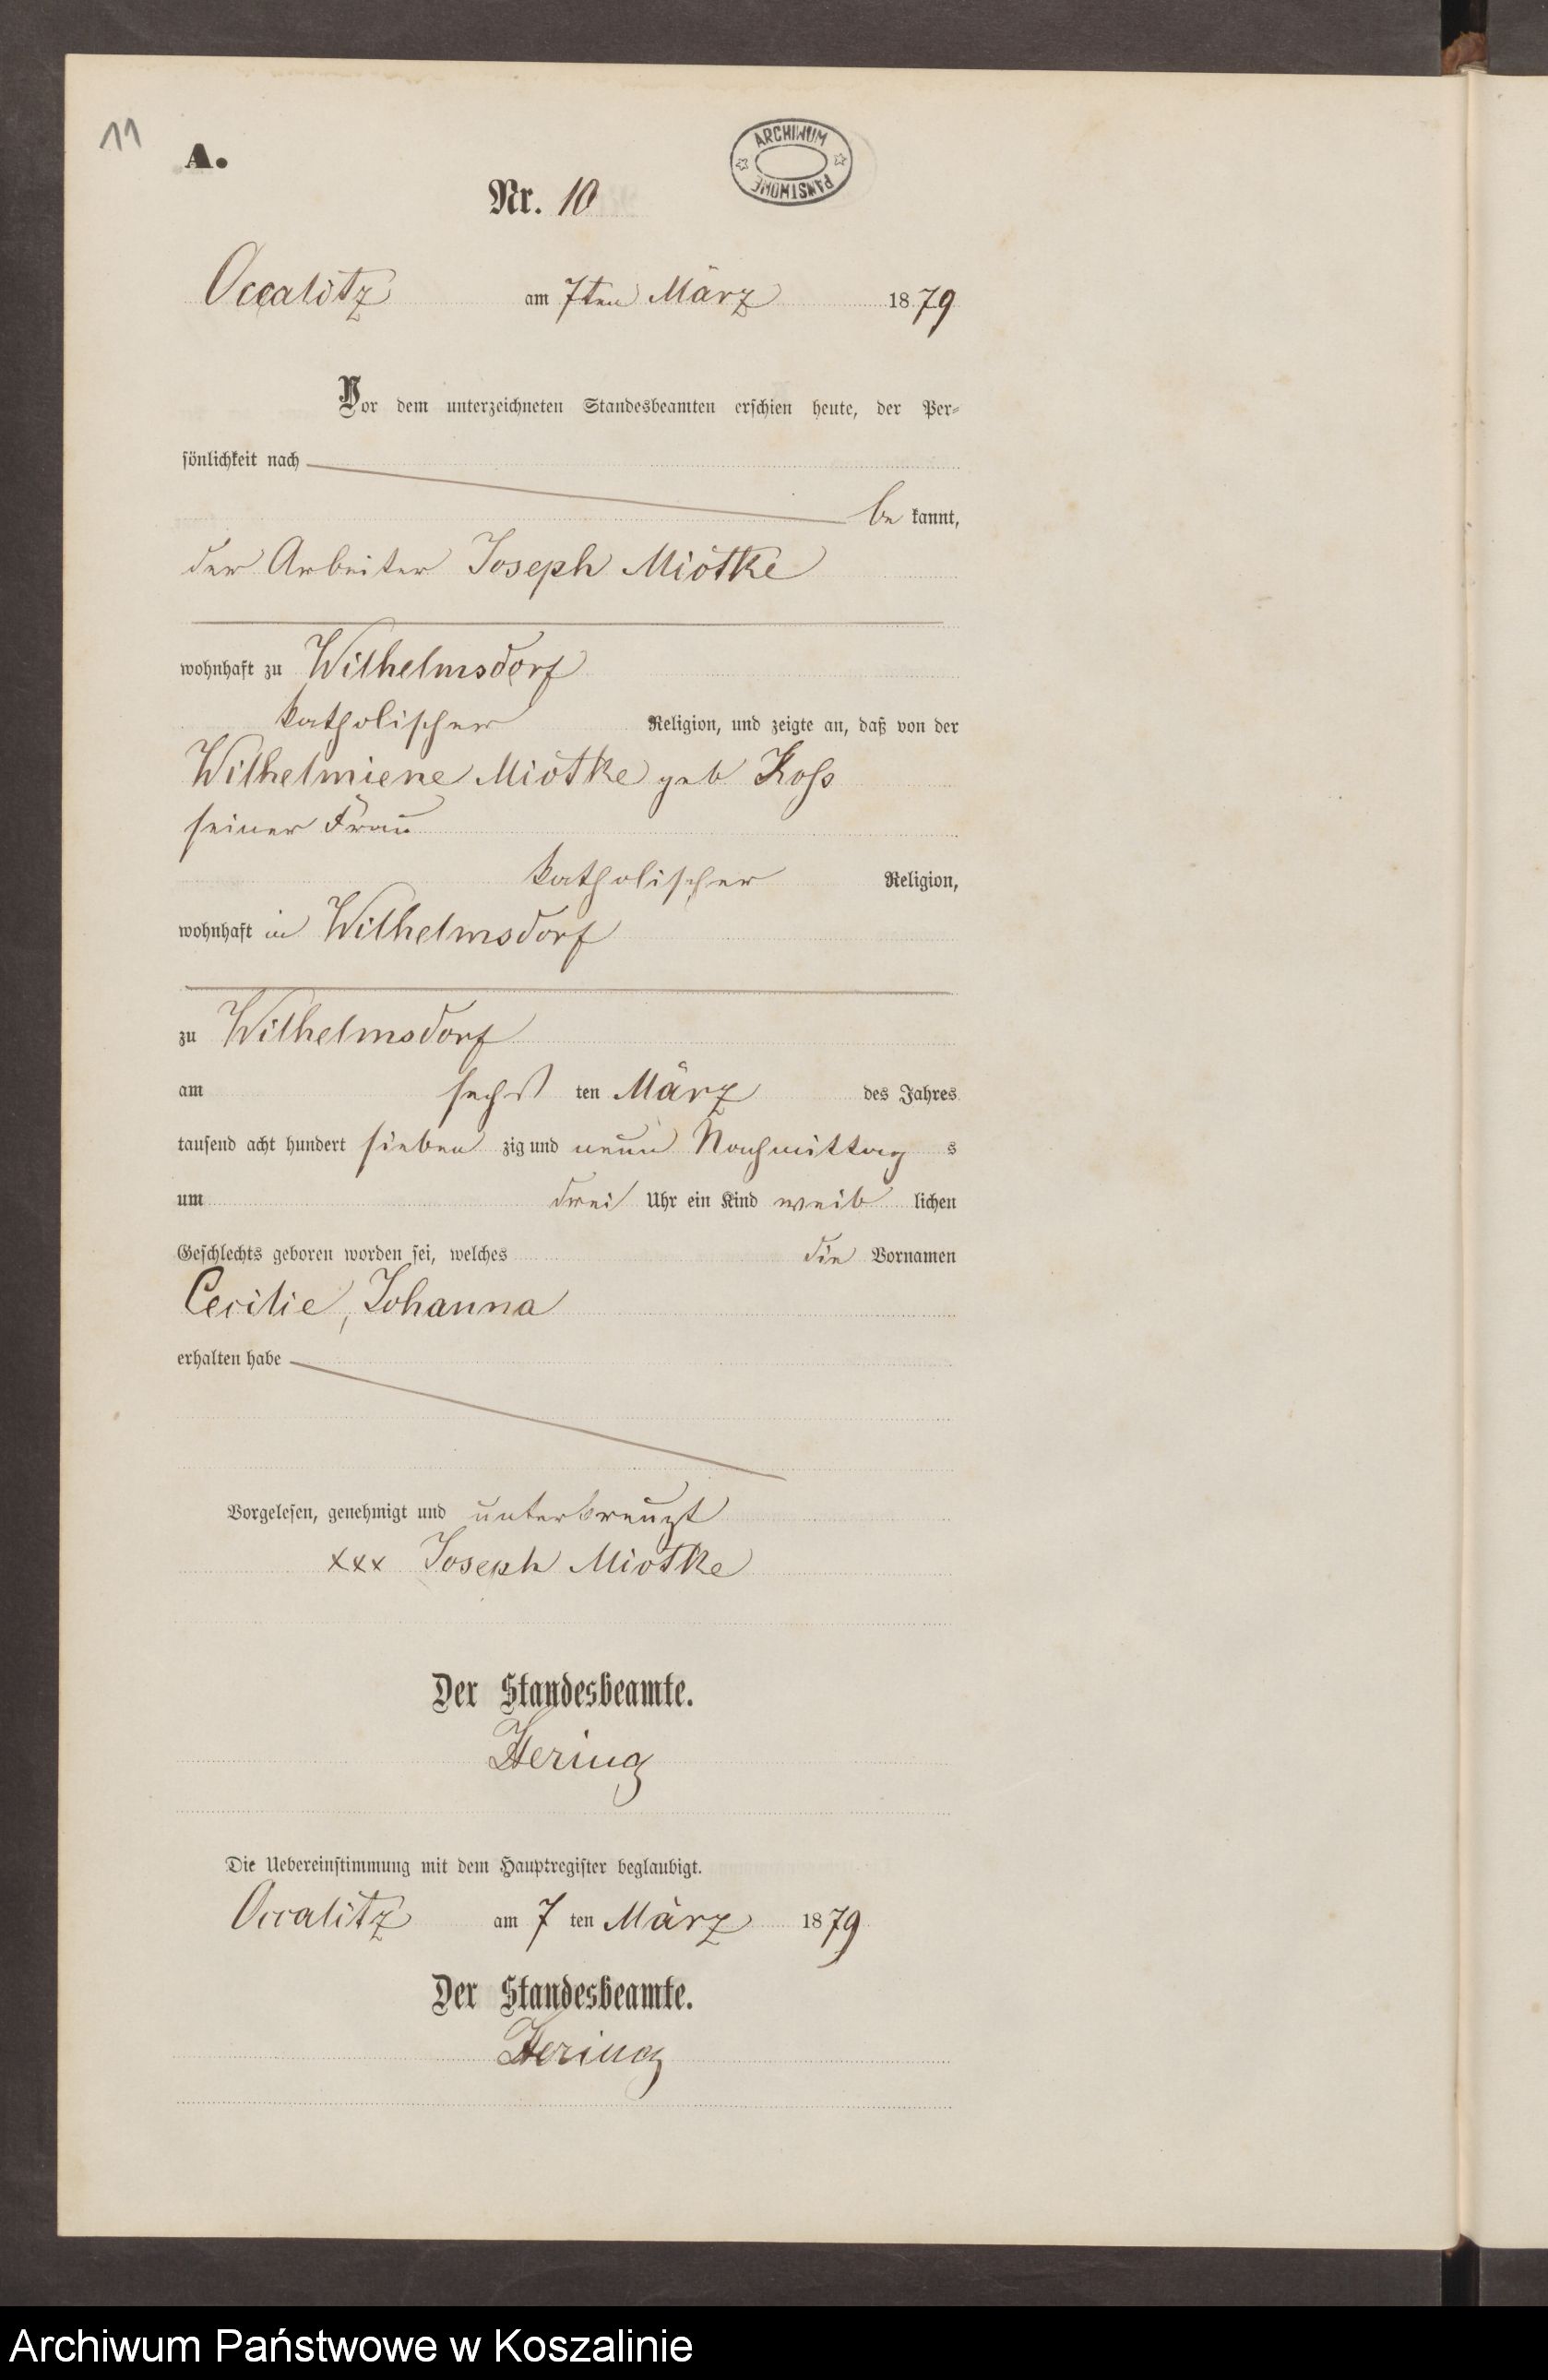 11
A.
ARCHIWUM PAŃSTWOWE
Nr. 10
Occalitz am 7ten März 1879
Vor dem unterzeichneten Standesbeamten erschien heute, der Per-
sönlichkeit nach
be kannt,
der Arbeiter Joseph Miotke
wohnhaft zu Wilhelmsdorf
katholischer Religion, und zeigte an, daß von der
Wilhelmiene Miotke geb Koss
seiner Frau
katholischer Religion,
wohnhaft in Wilhelmsdorf
zu Wilhelmsdorf
am sechst ten März des Jahres
tausend acht hundert sieben zig und neun Nachmittag s
um drei Uhr ein Kind weib lichen
Geschlechts geboren worden sei, welches die Vornamen
Cecilie, Johanna
erhalten habe
Vorgelesen, genehmigt und unterkreuzt
xxx Joseph Miotke
Der Standesbeamte.
Hering
Die Uebereinstimmung mit dem Hauptregister beglaubigt.
Occalitz am 7 ten März 1879
Der Standesbeamte.
Hering
Archiwum Państwowe w Koszalinie